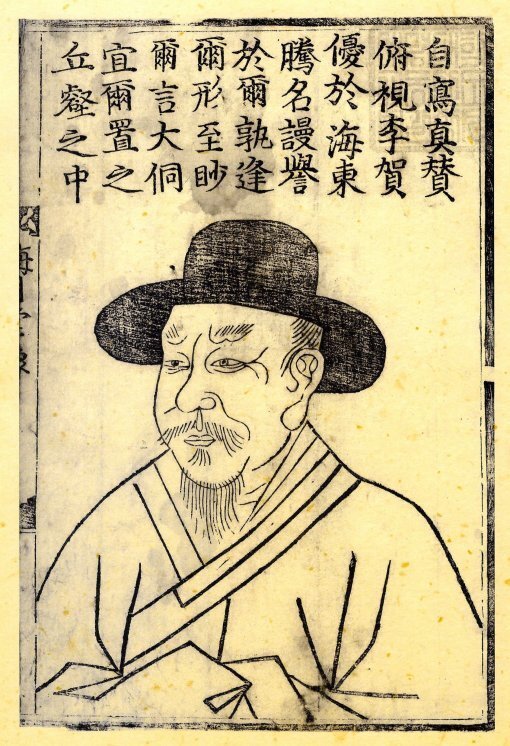 自寫真賛
俯視李賀
優於海東
騰名謾譽
於爾孰逢
爾形至眇
爾言大侗
宜爾置之
丘壑之中